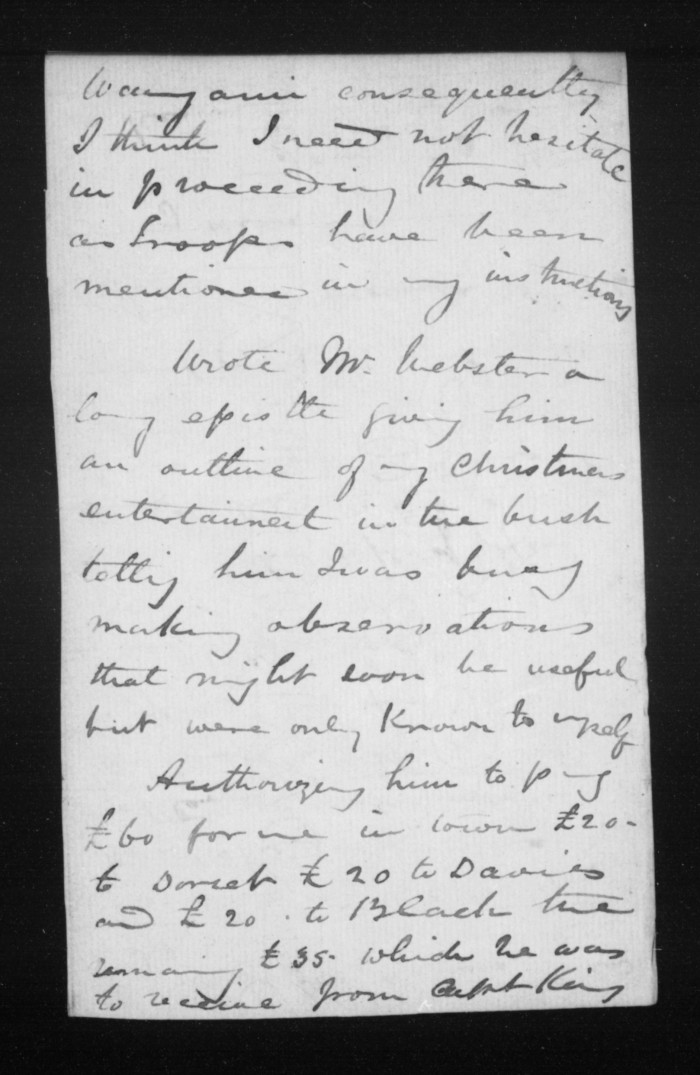 Wanganui consequently
I think I need not hesitate
in proceeding there
as troops have been
mentioned in my instructions
Wrote Mr. Webster a
long epistle giving him
an outline of my Christmas
entertainment in the bush
telling him I was busy
making observations
that might soon be useful
but were only known to myself
Authorizing him to pay
£60 for me in town £20-
to Dorset £20 to Davies
and £20 to Black the
remaing £35- which he was
to receive from Capt King